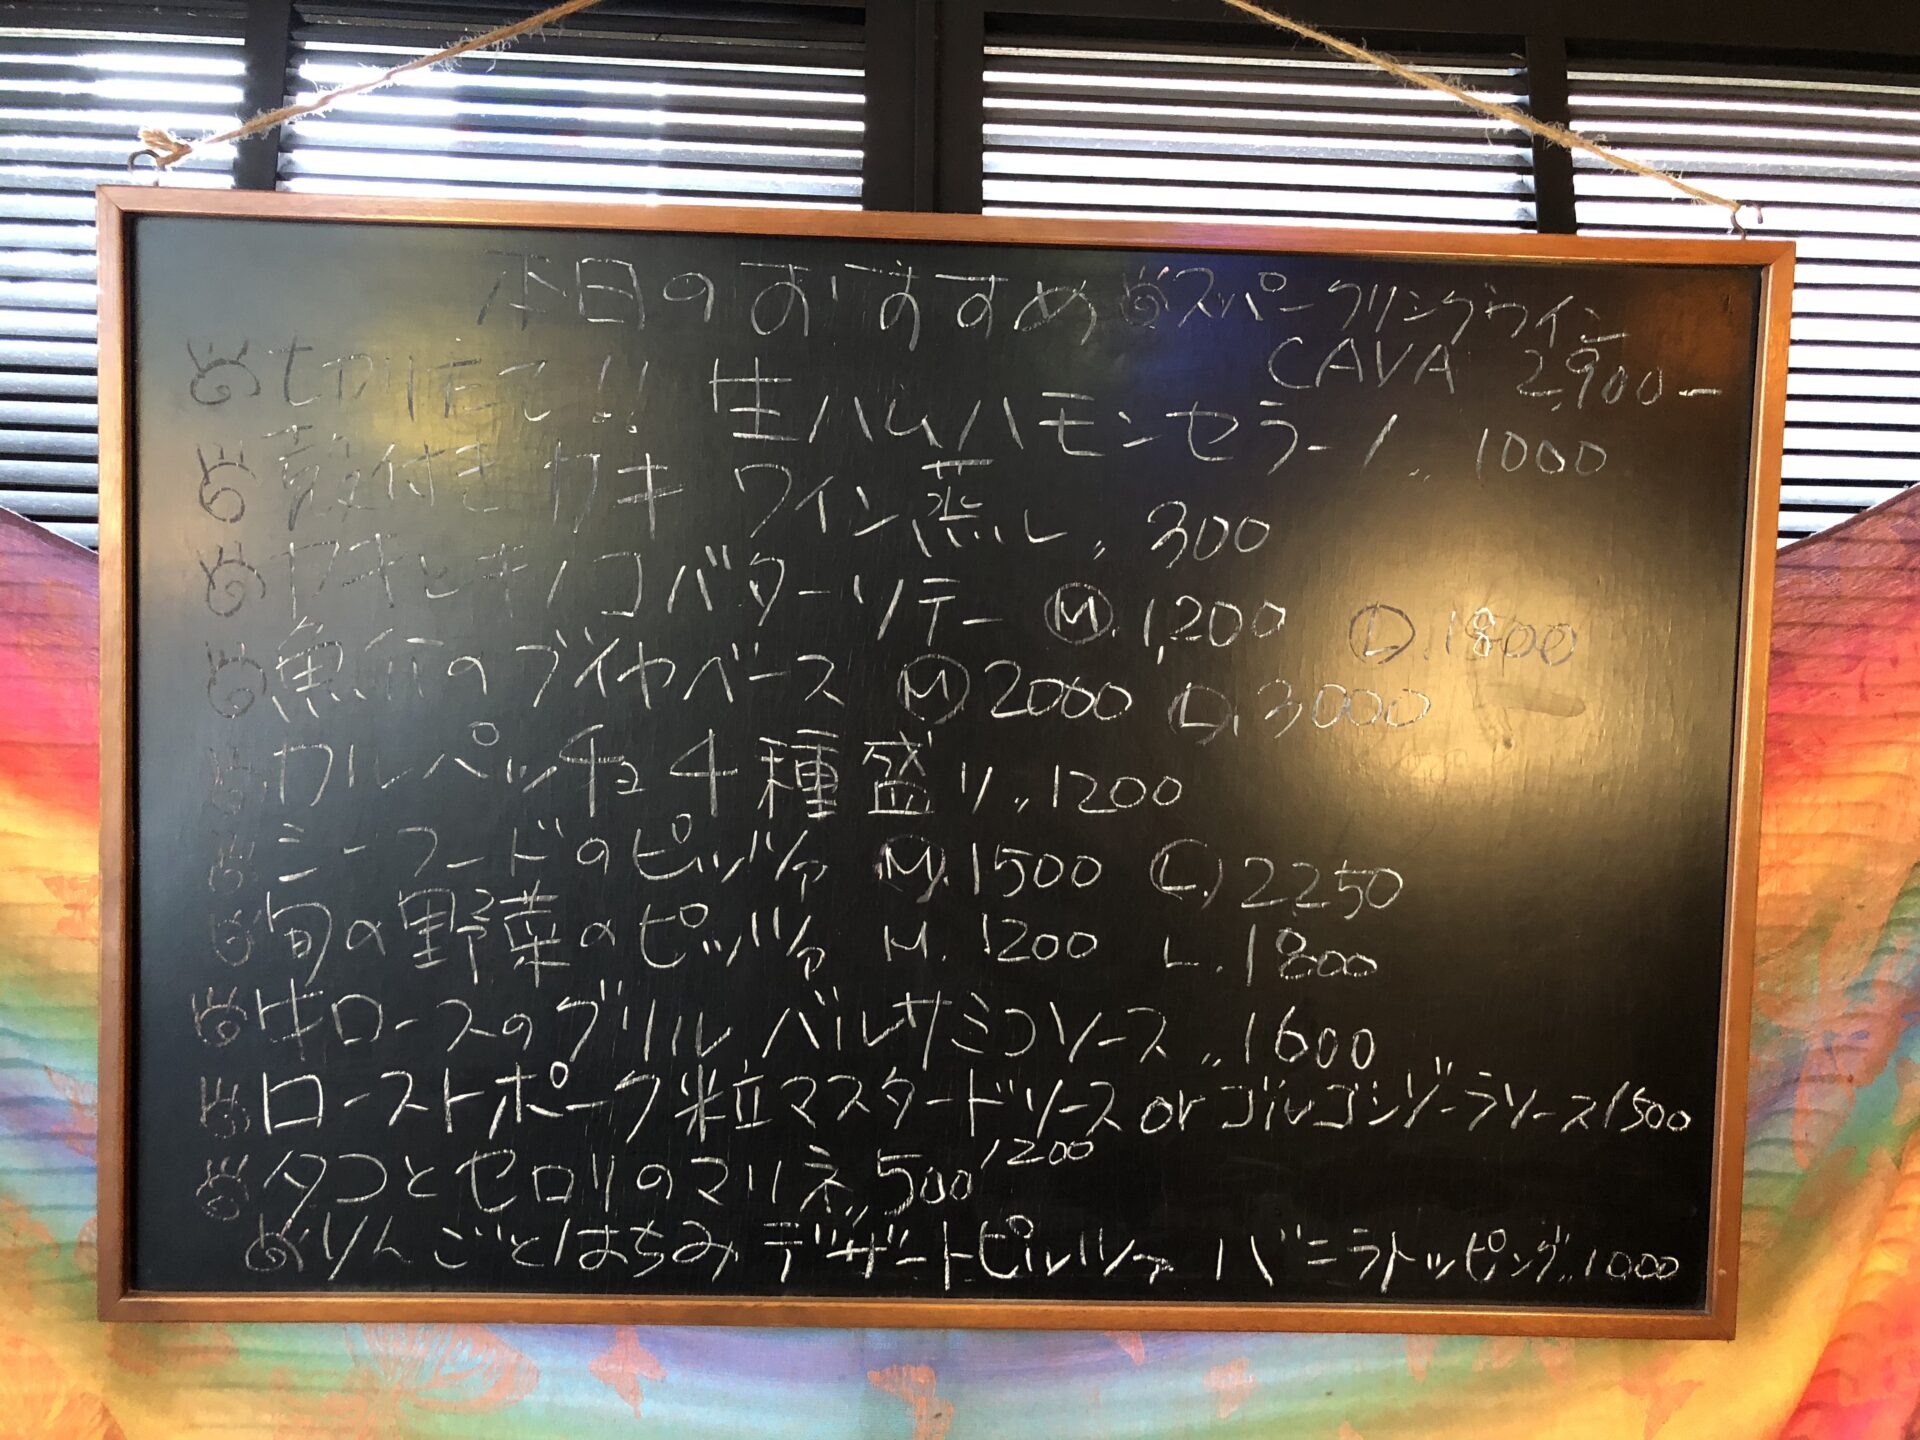 本日のおすすめ
スパークリングワイン
CAVA 2,900-
切りたて!! 生ハムハモンセラーノ〃1000
殻付きカキ ワイン蒸し〃300
カキとキノコバターソテー Ⓜ.1,200 Ⓛ.1800
魚介のブイヤベース Ⓜ2000 Ⓛ.3000
カルパッチョ4種盛り〃1200
シーフードのピッツァ Ⓜ.1500 Ⓛ.2250
旬の野菜のピッツァ M.1200 L.1800
牛ロースのグリル バルサミコソース〃1600
ローストポーク粒マスタードソース or ゴルゴンゾーラソース1500
1200
タコとセロリのマリネ〃500
りんごとはちみデザートピッツァ バニラトッピング〃1000